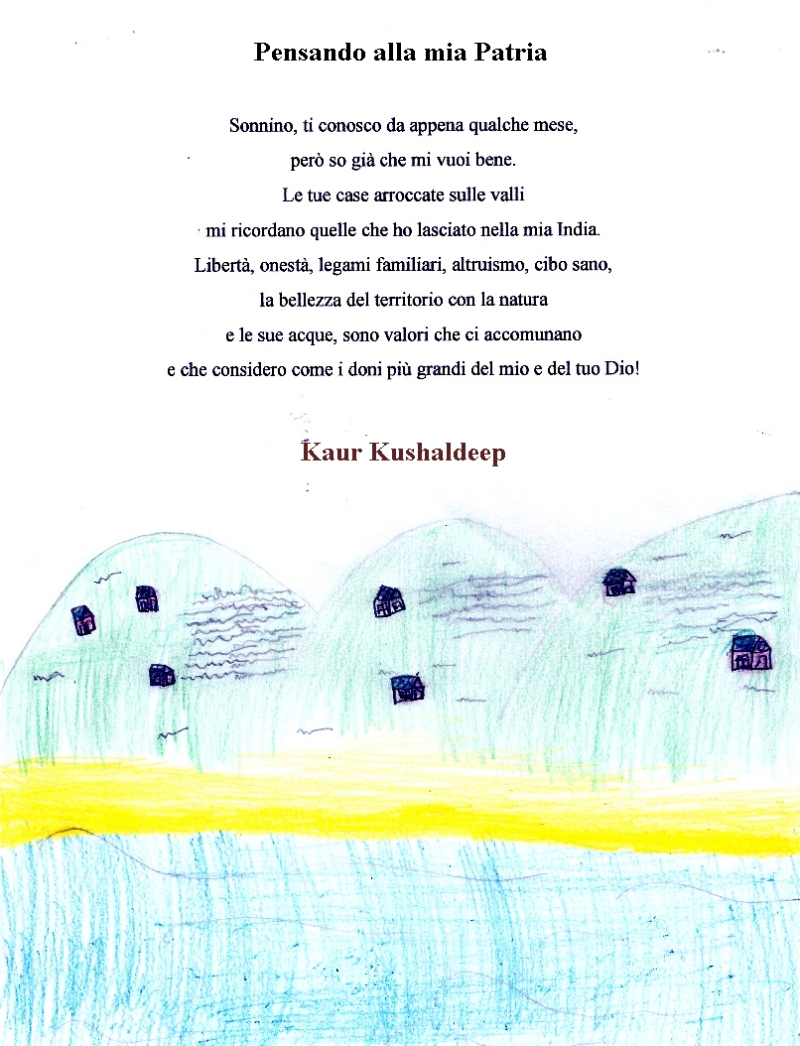 Pensando alla mia Patria
Sonnino, ti conosco da appena qualche mese,
però so già che mi vuoi bene.
Le tue case arroccate sulle valli
mi ricordano quelle che ho lasciato nella mia India.
Libertà, onestà, legami familiari, altruismo, cibo sano,
la bellezza del territorio con la natura
e le sue acque, sono valori che ci accomunano
e che considero come i doni più grandi del mio e del tuo Dio!
Kaur Kushaldeep